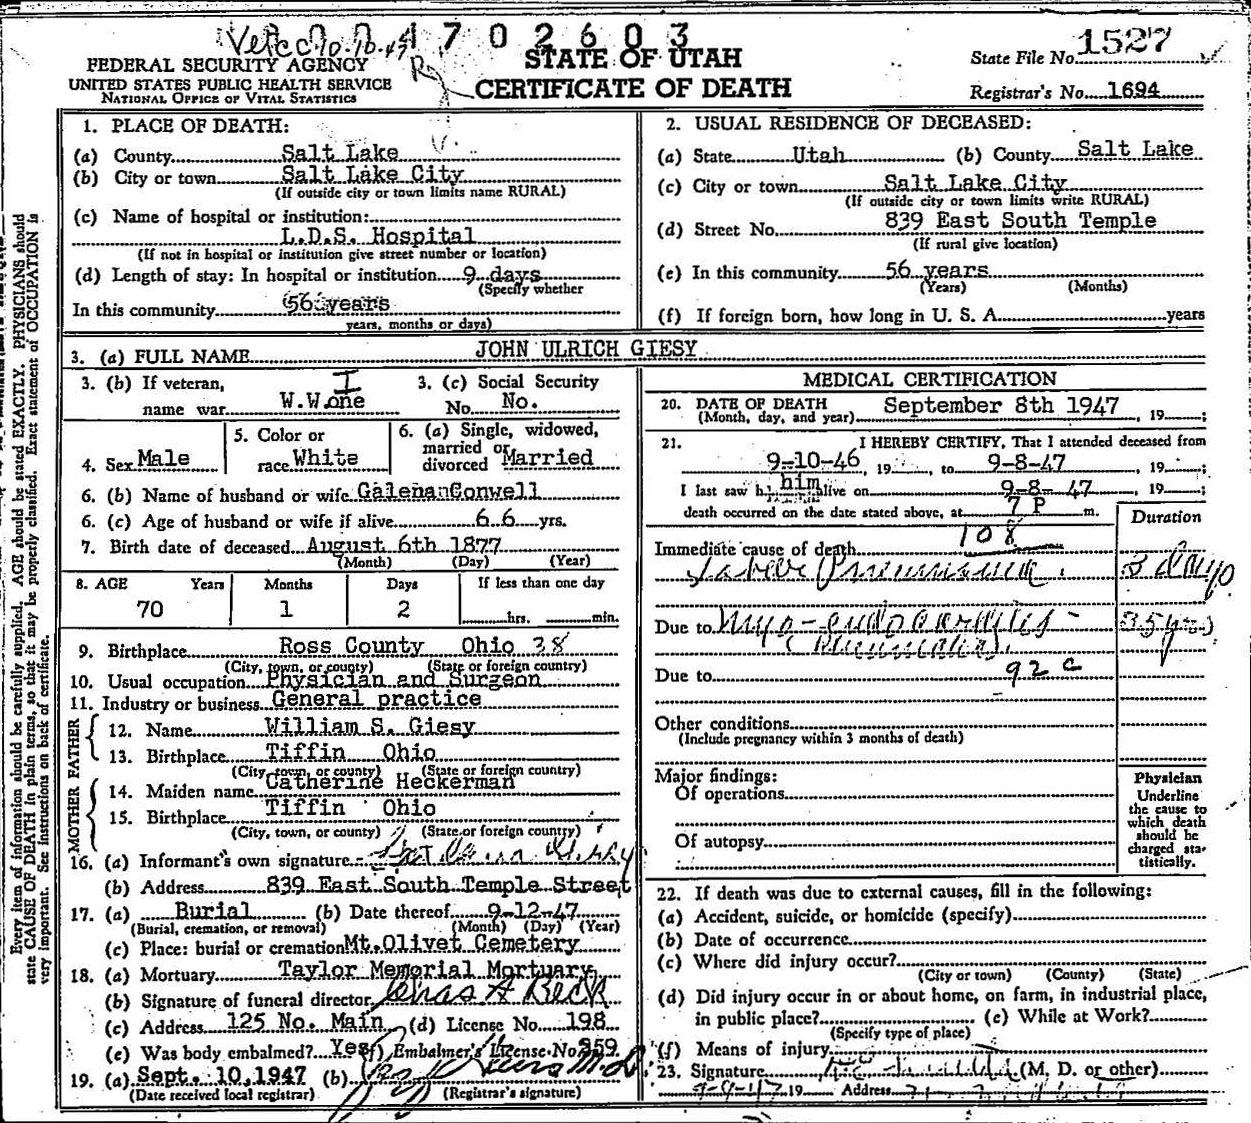 4702603
FEDERAL SECURITY AGENCY
UNITED STATES PUBLIC HEALTH SERVICE
NATIONAL OFFICE OF VITAL STATISTICS
STATE OF UTAH
CERTIFICATE OF DEATH
State File No. 1527
Registrar's No. 1694
1. PLACE OF DEATH:
(a) County Salt Lake
(b) City or town Salt Lake City
(If outside city or town limits name RURAL)
(c) Name of hospital or institution:
L.D.S. Hospital
(If not in hospital or institution give street number or location)
(d) Length of stay: In hospital or institution 9 days
(Specify whether
In this community 56 years
years, months or days)
2. USUAL RESIDENCE OF DECEASED:
(a) State Utah (b) County Salt Lake
(c) City or town Salt Lake City
(If outside city or town limits write RURAL)
(d) Street No. 839 East South Temple
(If rural give location)
(e) In this community 56 years
(Years) (Months)
(f) If foreign born, how long in U. S. A. years
3. (a) FULL NAME JOHN ULRICH GIESY
3. (b) If veteran, name war W.W.one I
3. (c) Social Security No. No.
4. Sex Male
5. Color or race White
6. (a) Single, widowed, married or divorced Married
6. (b) Name of husband or wife Galena Conwell
6. (c) Age of husband or wife if alive 66 yrs.
7. Birth date of deceased August 6th 1877
(Month) (Day) (Year)
8. AGE Years Months Days If less than one day
70 1 2 hrs. min.
9. Birthplace Ross County Ohio 38
(City, town, or county) (State or foreign country)
10. Usual occupation Physician and Surgeon
11. Industry or business General practice
FATHER
12. Name William S. Giesy
13. Birthplace Tiffin Ohio
(City, town, or county) (State or foreign country)
MOTHER
14. Maiden name Catherine Heckerman
15. Birthplace Tiffin Ohio
(City, town, or county) (State or foreign country)
16. (a) Informant's own signature
(b) Address 839 East South Temple Street
17. (a) Burial (b) Date thereof 9-12-47
(Burial, cremation, or removal) (Month) (Day) (Year)
(c) Place: burial or cremation Mt.Olivet Cemetery
18. (a) Mortuary Taylor Memorial Mortuary
(b) Signature of funeral director Chas A Beck
(c) Address 125 No. Main (d) License No. 198
(e) Was body embalmed? Yes (f) Embalmer's License No. 259
19. (a) Sept. 10,1947 (b)
(Date received local registrar) (Registrar's signature)
MEDICAL CERTIFICATION
20. DATE OF DEATH September 8th 1947, 19 ;
(Month, day, and year)
21. I HEREBY CERTIFY, That I attended deceased from
9-10-46, 19 , to 9-8-47, 19 ;
I last saw h him alive on 9-8-47, 19 ;
death occurred on the date stated above, at 7 P m.
Duration
108
Immediate cause of death
Lobar Pneumonia. 3 days
Due to Myo-endocarditis 35 yrs
(Rheumatic).
Due to 92 c
Other conditions
(Include pregnancy within 3 months of death)
Major findings:
Of operations
Of autopsy
Physician
Underline
the cause to
which death
should be
charged sta-
tistically.
22. If death was due to external causes, fill in the following:
(a) Accident, suicide, or homicide (specify)
(b) Date of occurrence
(c) Where did injury occur?
(City or town) (County) (State)
(d) Did injury occur in or about home, on farm, in industrial place,
in public place? (e) While at Work?
(Specify type of place)
(f) Means of injury
23. Signature (M. D. or other)
19 Address
Every item of information should be carefully supplied. AGE should be stated EXACTLY. PHYSICIANS should
state CAUSE OF DEATH in plain terms, so that it may be properly classified. Exact statement of OCCUPATION is
very important. See instructions on back of certificate.